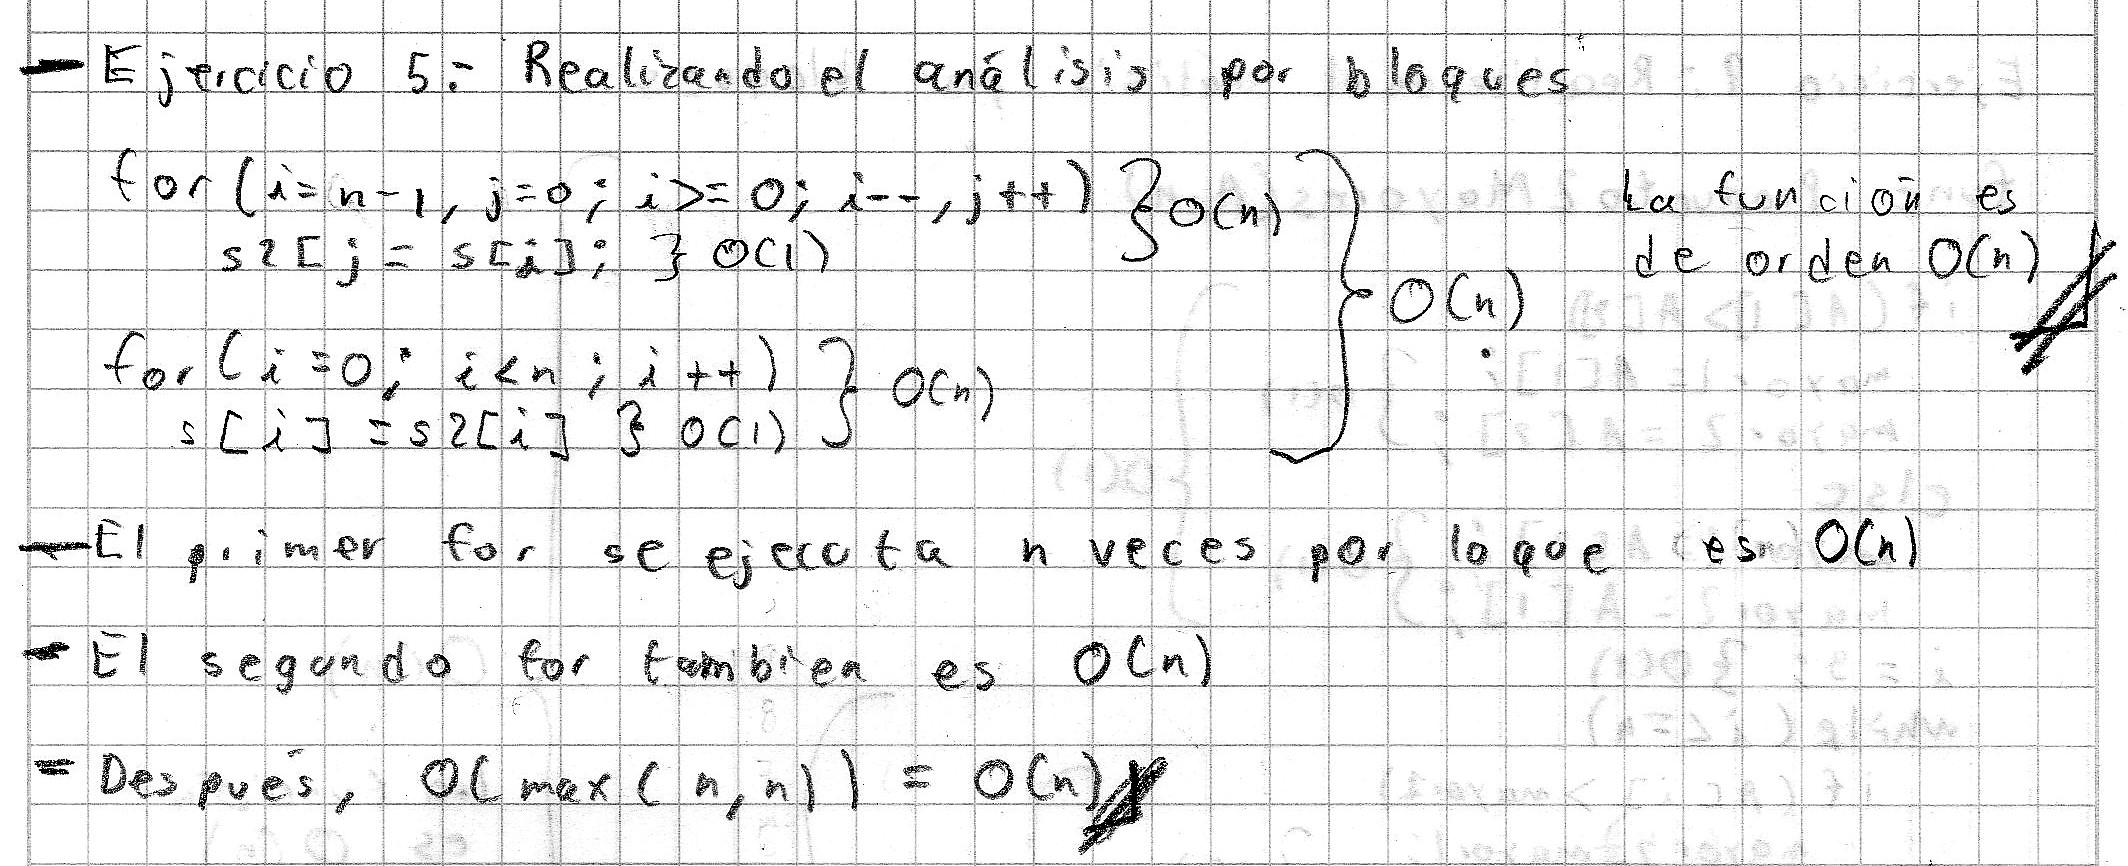 - Ejercicio 5:- Realizando el análisis por bloques
for (i=n-1, j=0; i>=0; i--, j++) } O(n)
s2[j = s[i]; } O(1)
for (i=0; i<n; i++) } O(n)
s[i] = s2[i] } O(1)
} O(n)
La función es
de orden O(n)
- El primer for se ejecuta n veces por lo que es O(n)
- El segundo for tambien es O(n)
= Después, O(max(n,n)) = O(n)